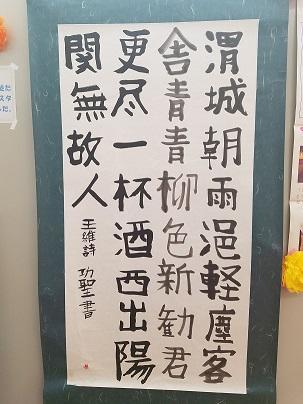 渭城朝雨浥軽塵客
舎青青柳色新勧君
更尽一杯酒西出陽
関無故人
王維詩 功聖書